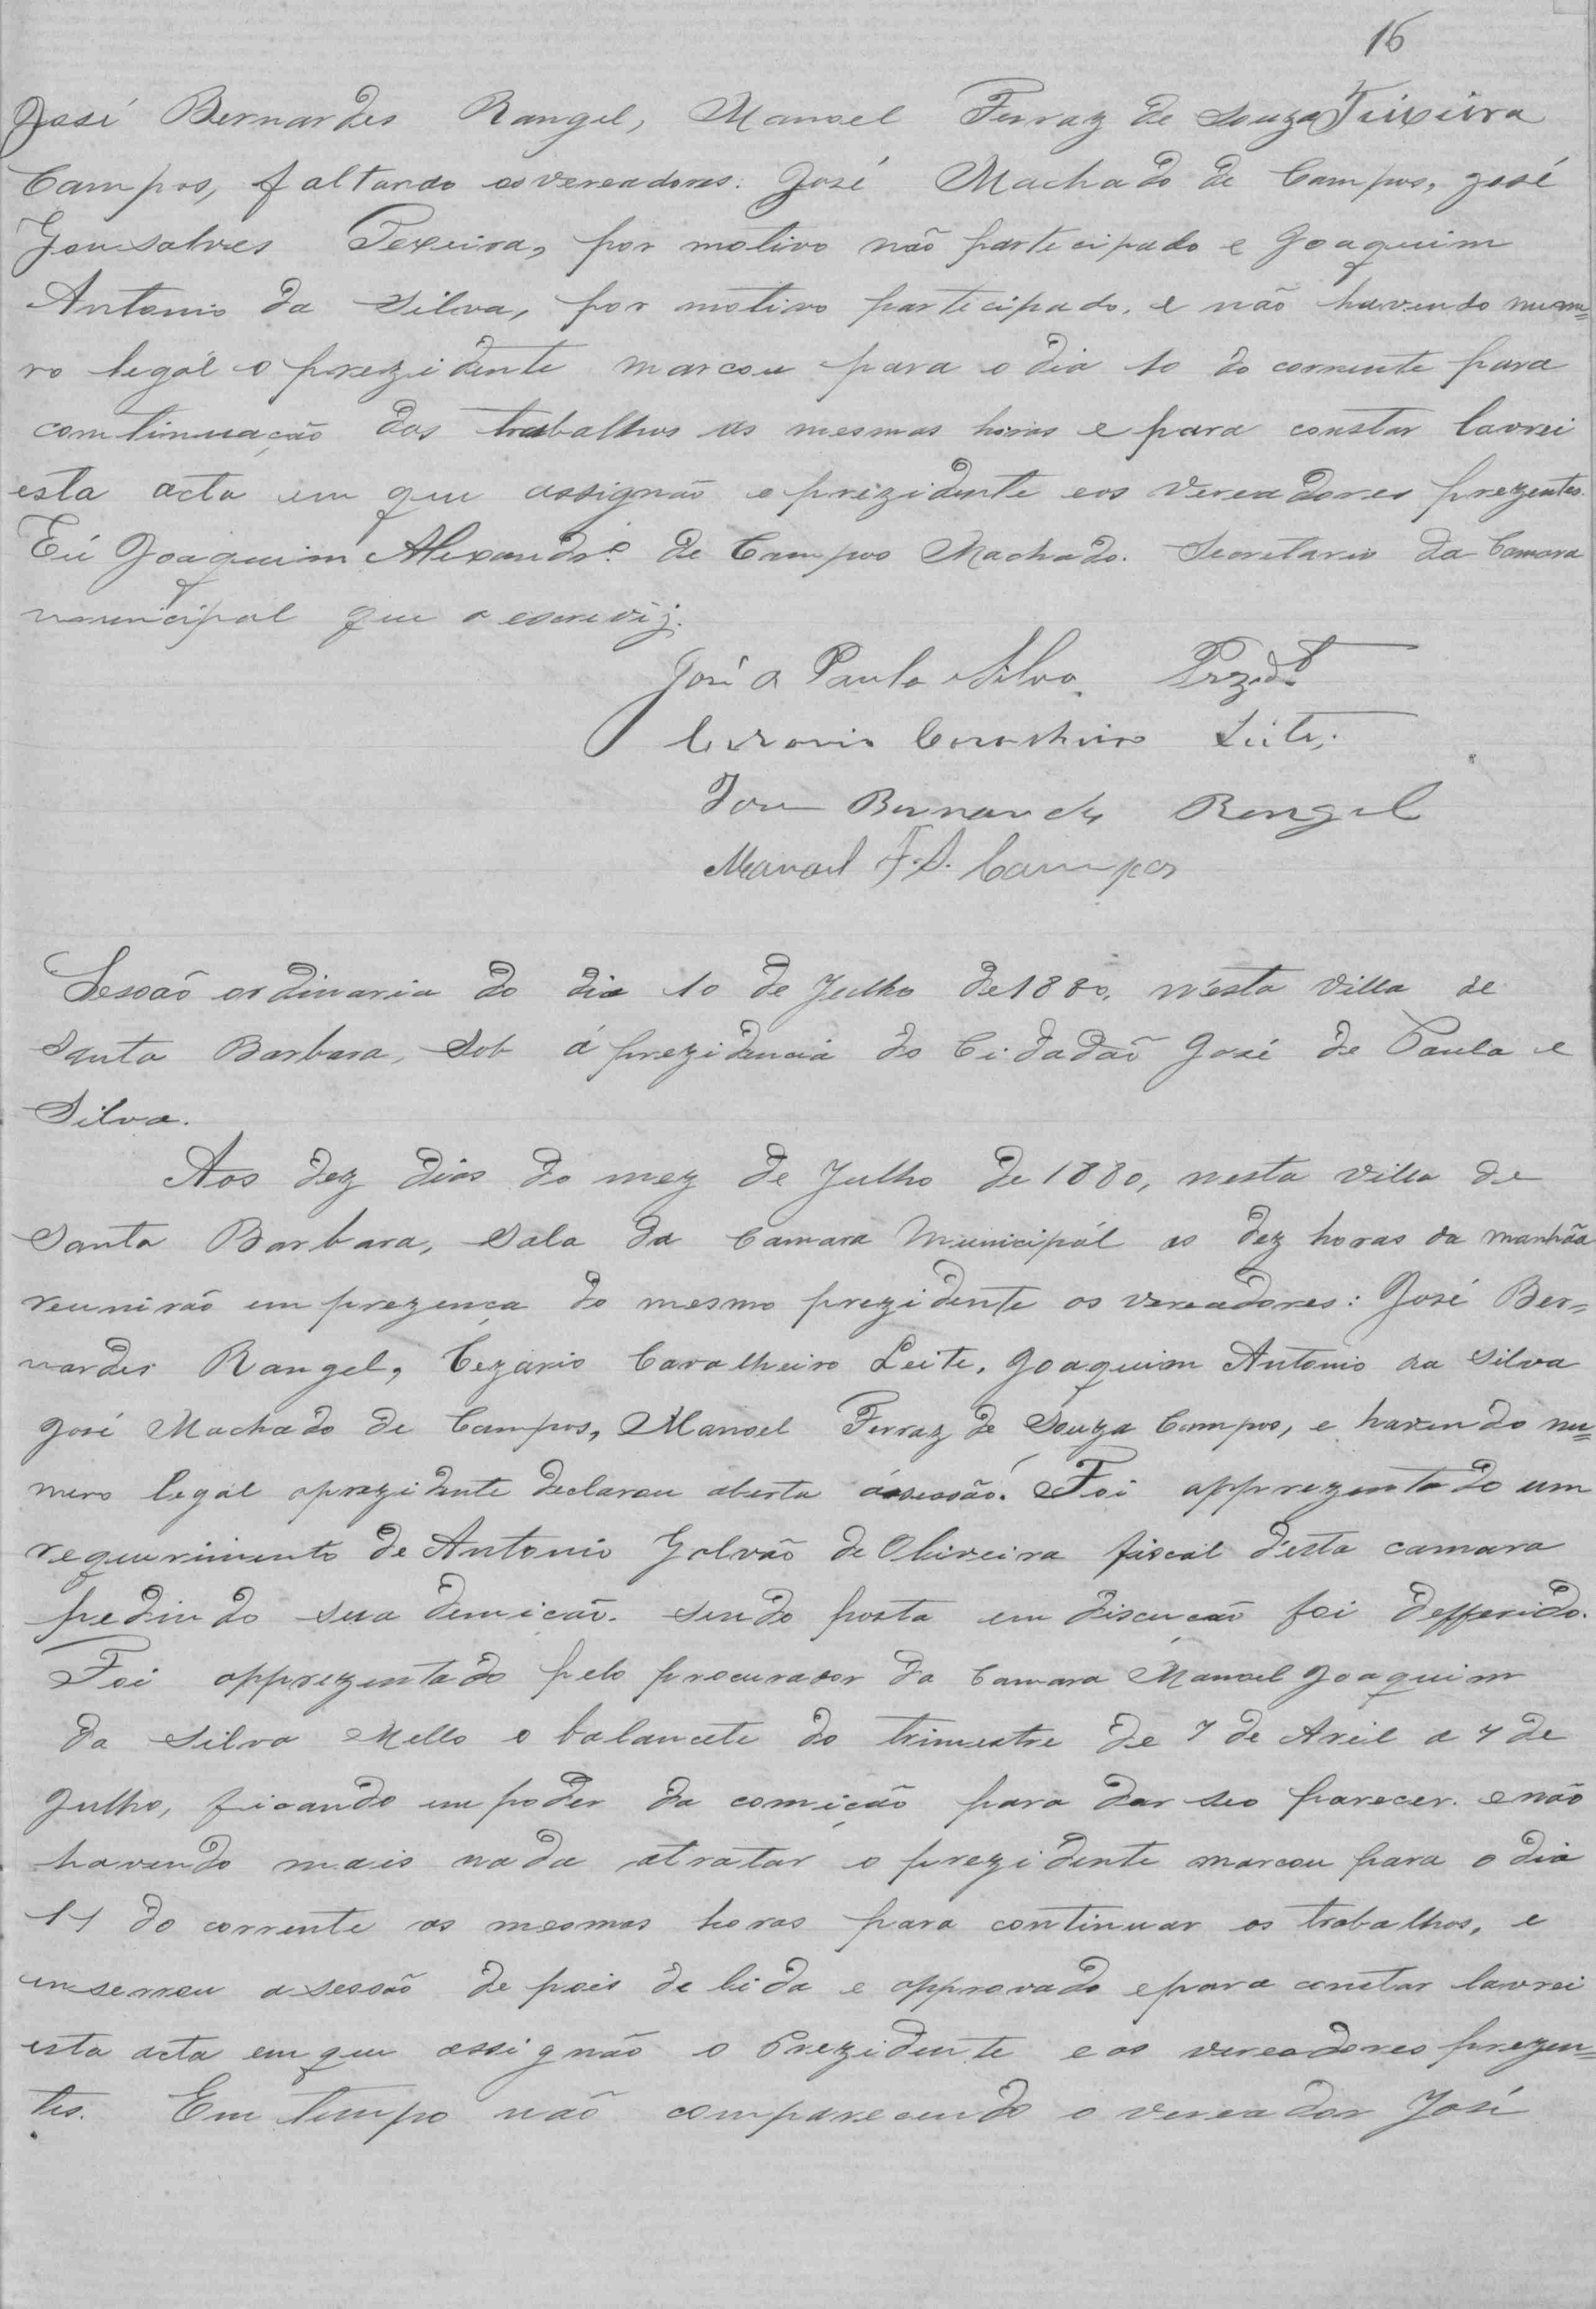 16
José Bernardes Rangel, Manoel Ferraz de Souza Teixeira
Campos, faltando os vereadores: José Machado de Campos, José
Gonsalves Texeira, por motivo não participado e Joaquim
Antonio da Silva, por motivo participado, e não havendo nume=
ro legál o prezidente marcou para o dia 10 do corrente para
continuação dos trabalhos as mesmas horas e para constar lavrei
esta acta em que assignão o prizidente e os vereadores prezentes.
Eú Joaquim Alexandre de Campos Machado. Secretario da Camara
municipal que a escrevij.
José de Paula Silva. Prezide
Cezario Cavalheiro Leite,
Jose Bernardes Rangel
Manoel F. S. Campos
Sessão ordinaria do dia 10 de Julho de 1880, n'esta villa de
Santa Barbara, Sob á prezidencia do Cidadão José de Paula e
Silva.
Aos dez dias do mez de Julho de 1880, nesta villa de
Santa Barbara, Sala da Camara Municipál as dez horas da manhãa
reunirão em prezença do mesmo prezidente os vereadores: José Ber=
nardes Rangel, Cezario Cavalheiro Leite, Joaquim Antonio da Silva
José Machado de Campos, Manoel Ferraz de Souza Campos, e havendo nu=
mero legal o prezidente declarou aberta á sessão. Foi apprezentado um
requerimento de Antonio Galvão de Oliveira fiscal d'esta camara
pedindo sua demição. sendo posta em discução foi defferido.
Foi apprezentado pelo procurador da Camara Manoel Joaquim
da Silva Mello o balancete do trimestre de 7 de Avril a 7 de
Julho, ficando em poder da comição para dar seo parecer. e não
havendo mais nada atratar o prezidente marcou para o dia
11 do corrente as mesmas horas para continuar os trabalhos, e
enserrou a sessão de pois de lida e approvado e para constar lavrei
esta acta em que assignão o Prezidente e os vereadores prezen=
tes. Em tempo não comparecendo o vereador José